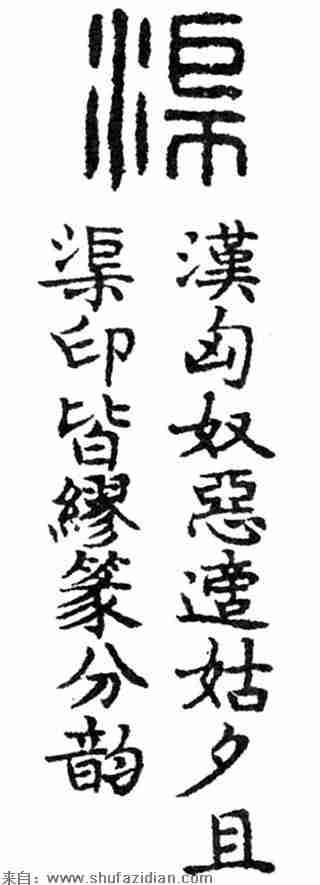 渠
漢匈奴惡適姑夕且
渠印皆繆篆分韵
来自：www.shufazidian.com